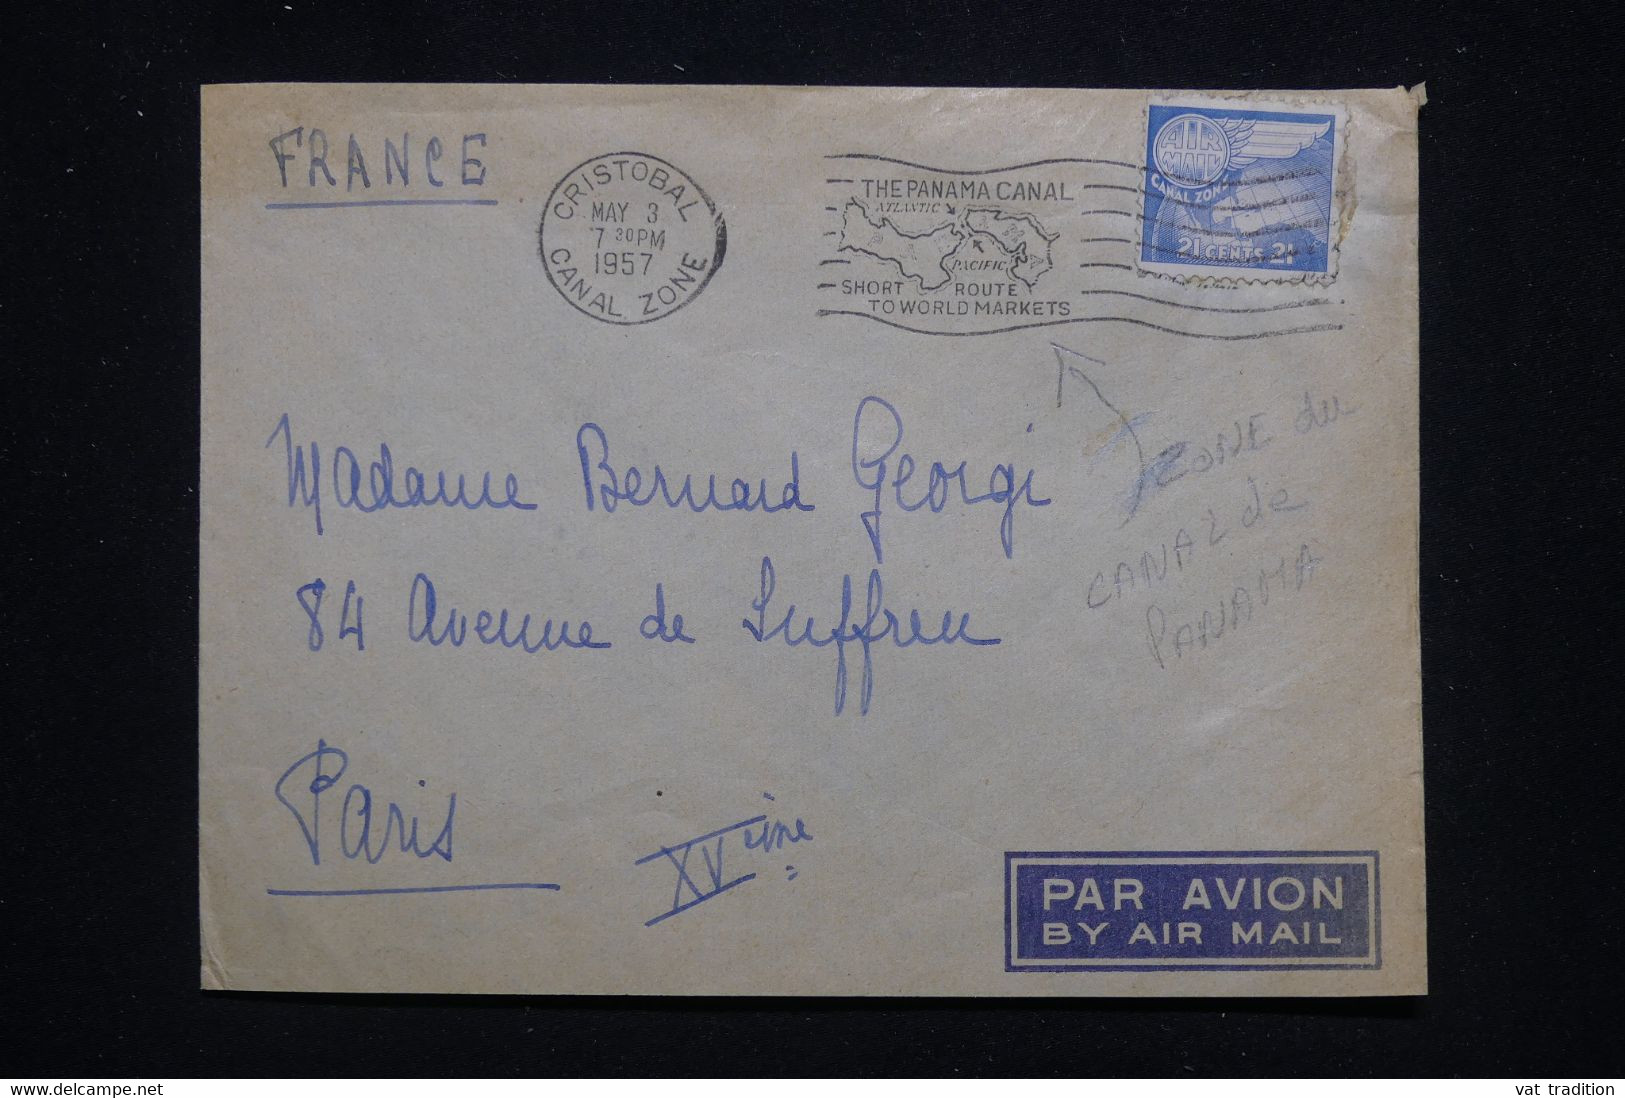 FRANCE
CRISTOBAL
MAY 3
7 30 PM
1957
CANAL ZONE
THE PANAMA CANAL
ATLANTIC
PANAMA
PACIFIC
SHORT ROUTE
TO WORLD MARKETS
AIR
MAIL
CANAL ZONE
21 CENTS 21
Madame Bernard Georgi
84 Avenue de Suffren
Paris XVème
ZONE du
CANAL de
PANAMA
PAR AVION
BY AIR MAIL
delcampe.net
vat_tradition